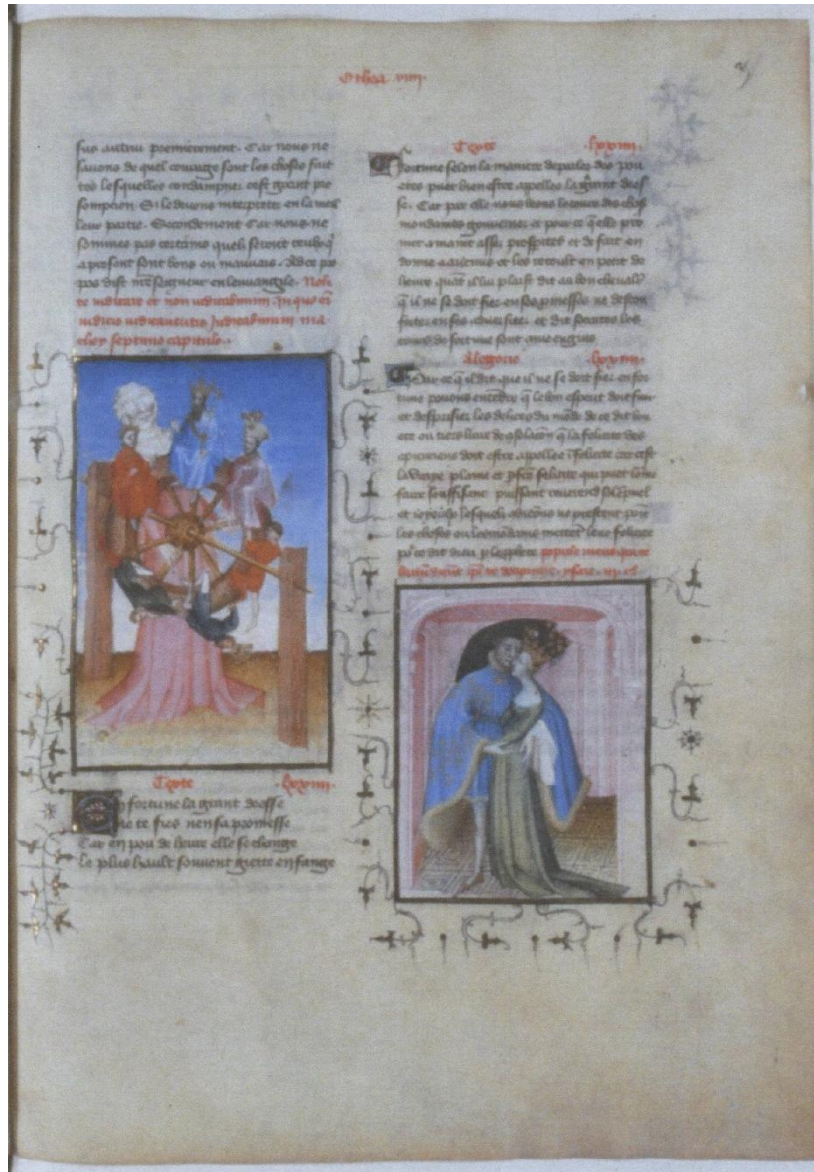 Othea .viii.
sus autrui premierement. Car nous ne
savons de quel courage sont les choses fait
tes lesquelles condampner cest grant pre
sompcion. Si le devons interpreter en la meil
leur partie. Secondement. Car nous ne
sommes pas certains quelz seront ceulx q̃
a present sont bons ou mauvais. Ad ce pro
pos dist nr̃e seigneur en leuuangile. Noli
te iudicare et non iudicabimini. In quo em̃
iudicio iudicaueritis iudicabimini ma
thei septimo capitulo.
Texte .lxxiiii.
En fortune la grant deesse
Ne te fies nen sa promesse
Car en pou de heure elle se change
Le plus hault souvent giette en fange
Texte .lxxiiii.
Fortune selon la maniere de parler des poe
etes puet bien estre appellee la grant dees
se. Car par elle nous veons le cours des choses
mondaines gouverner et pour ce q̃ elle pro
met a maint assez prosperitez et de fait en
donne a aucuns et les retoult en petit de
heure quant il lui plaist dit au bon chevalr̃
q̃ il ne se doit fier en ses promesses ne descon
forter en ses et dit socrates les
tours de fortune sont engins
Alegorie .lxxiiii.
Par ce q̃ il dit que il ne se doit fier en for
tune pouons entendre q̃ le bon esperit doit fuir
et desprisier les delices du monde de ce dit bo
ece ou tiers livre de que la felicite des
epicuriens doit estre appellee infelicite car cest
la vraye plaine et felicite qui puet lomme
faire souffisant puissant reverend solempnel
et ioyeux lesquelz choses ne prestent point
les choses ou les mondains mettent leur felicite
po ce dit dieu p le prophete popule meus qui te
beatum dicunt ipsi te decipiunt. ysaie. iii. c.